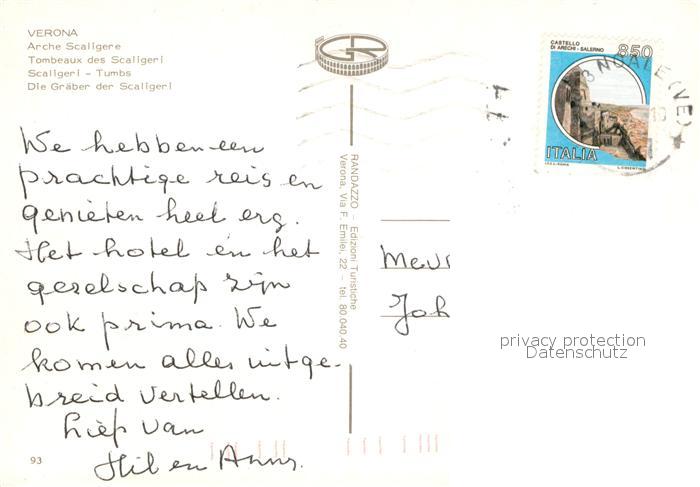 VERONA
Arche Scaligere
Tombeaux des Scaligeri
Scaligeri - Tumbs
Die Gräber der Scaligeri
We hebben een
prachtige reis en
genieten heel erg.
Het hotel én het
geselschap zijn
ook prima. We
komen alles uitge-
breid vertellen.
Liefs van
Hil en
93
RANDAZZO - Edizioni Turistiche
Verona, Via F. Emilei, 22 - tel. 80.040.40
CASTELLO
DI ARECHI - SALERNO
850
ITALIA
I.P.Z.S. ROMA
(VE)
Mevr
Joh
privacy protection
Datenschutz